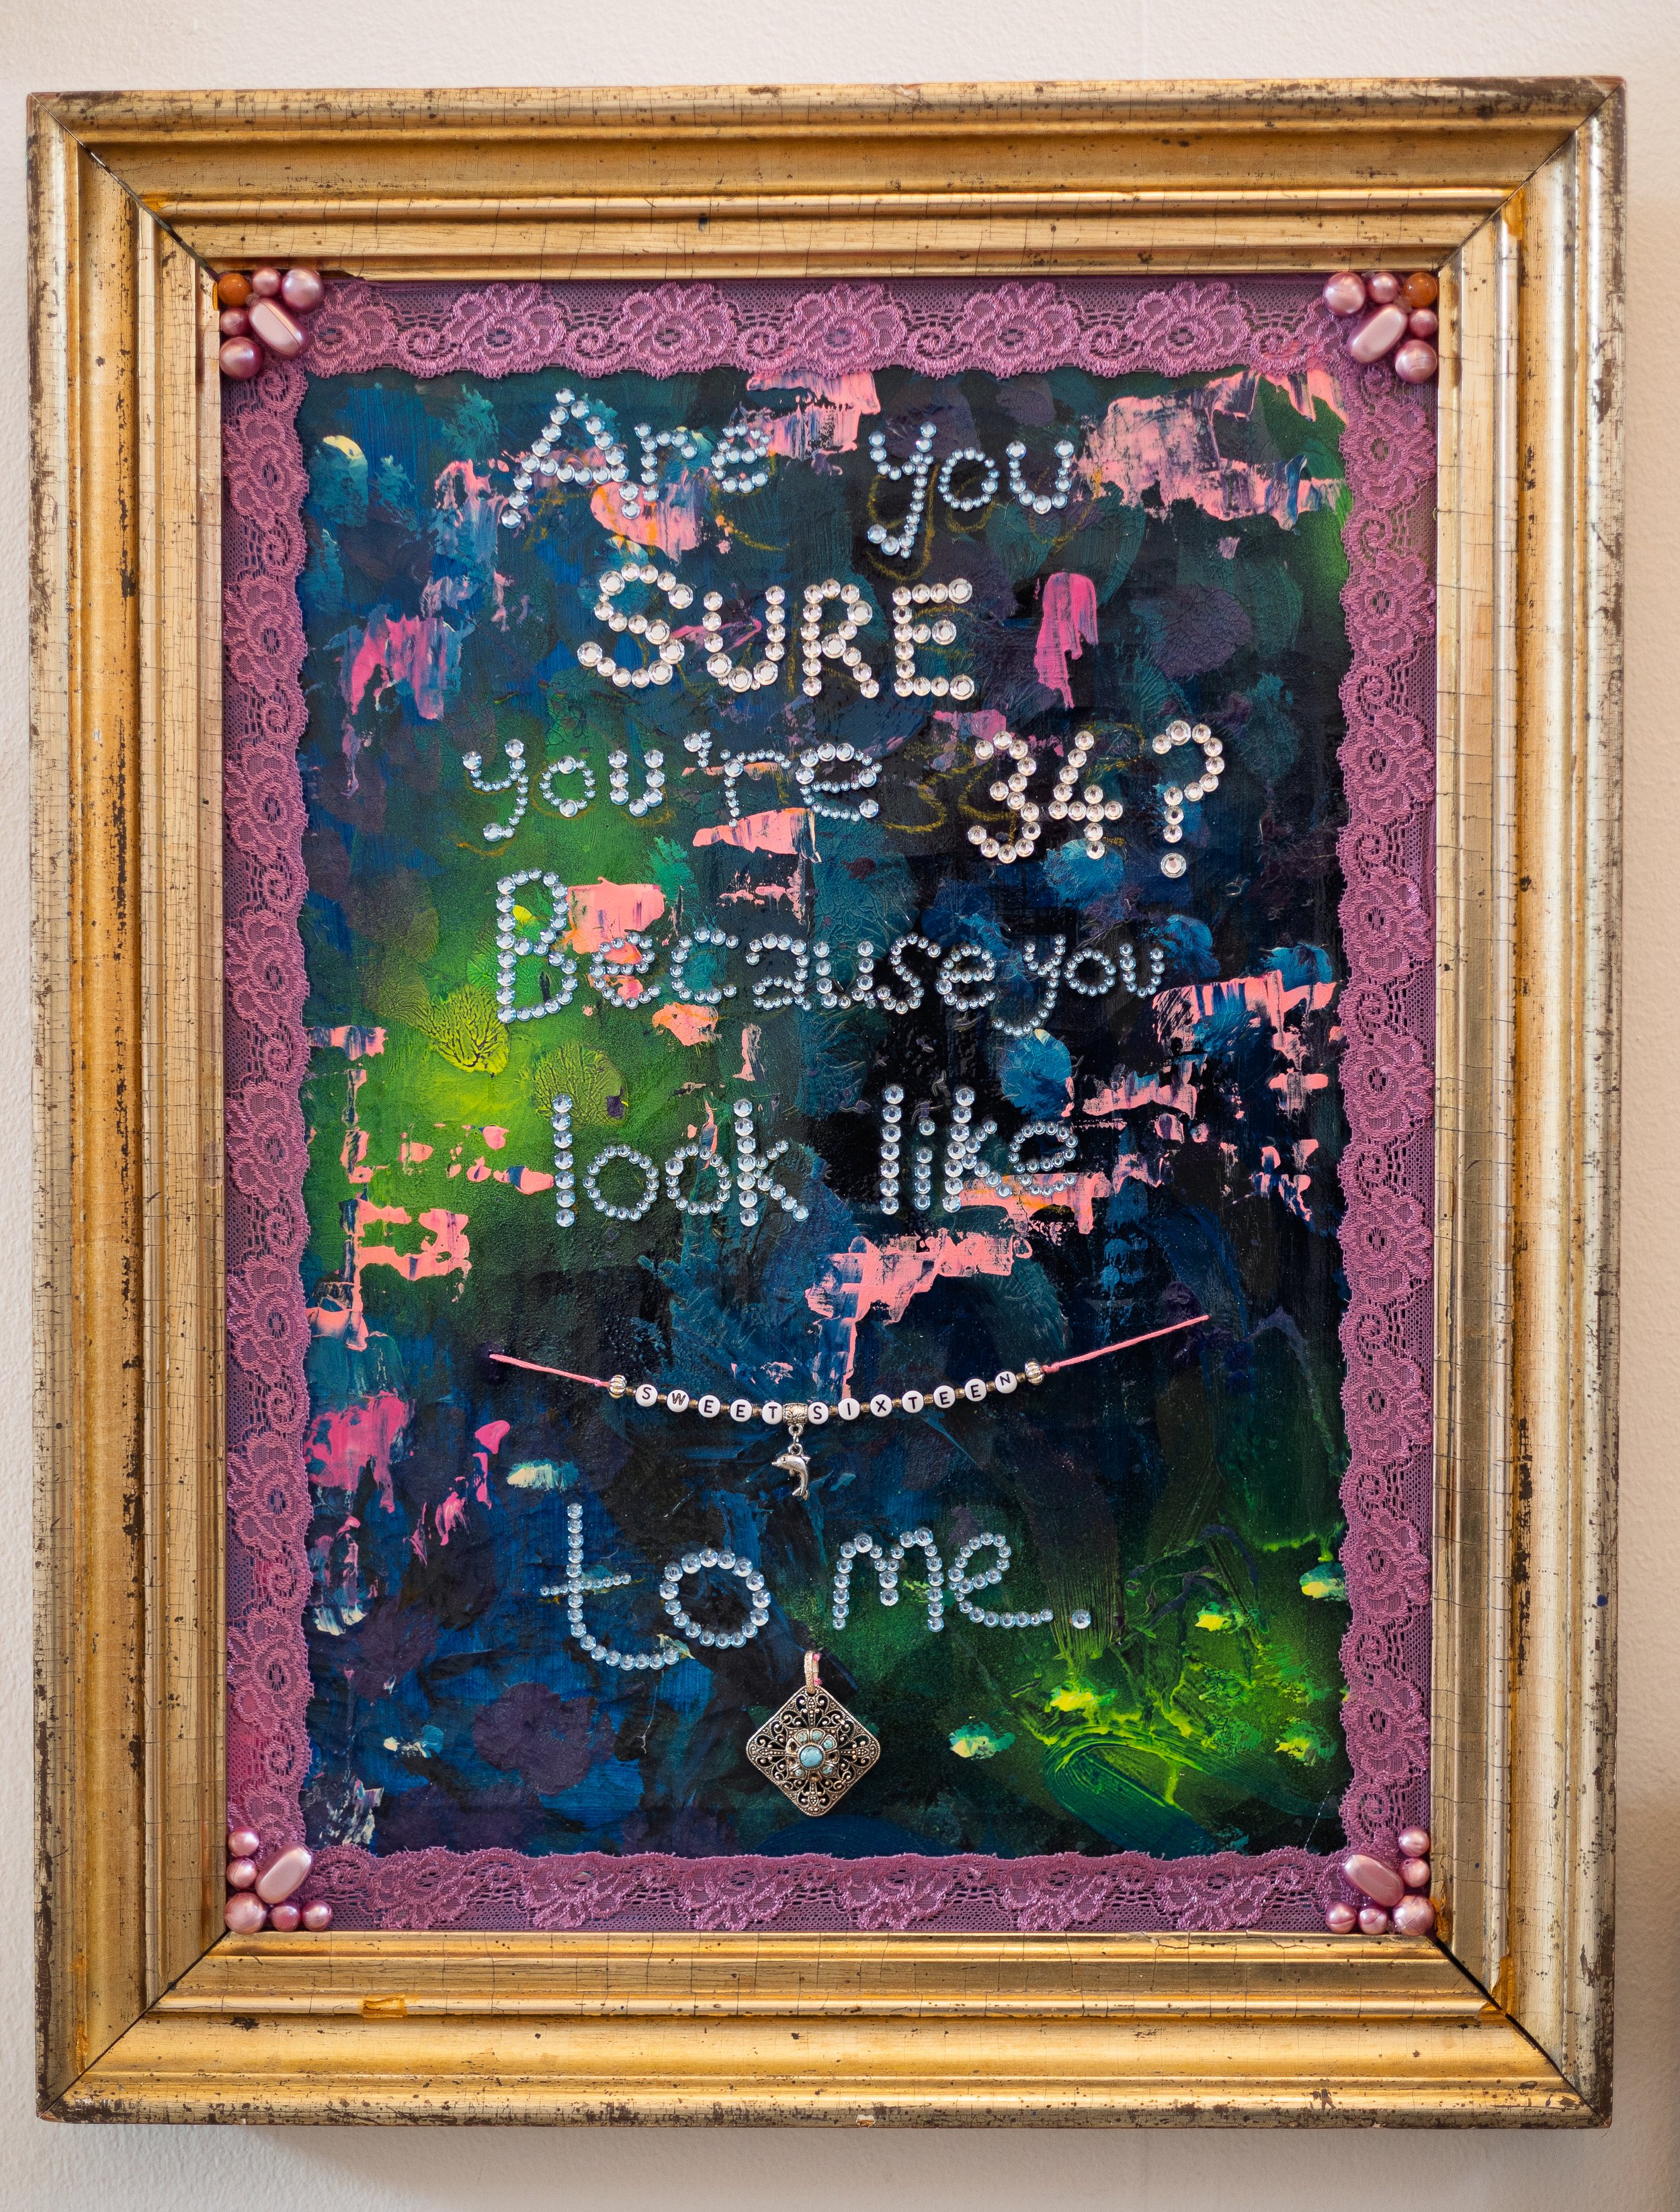 Are you
SURE
you're 34?
Because you
look like
SWEETSIXTEEN
to me.